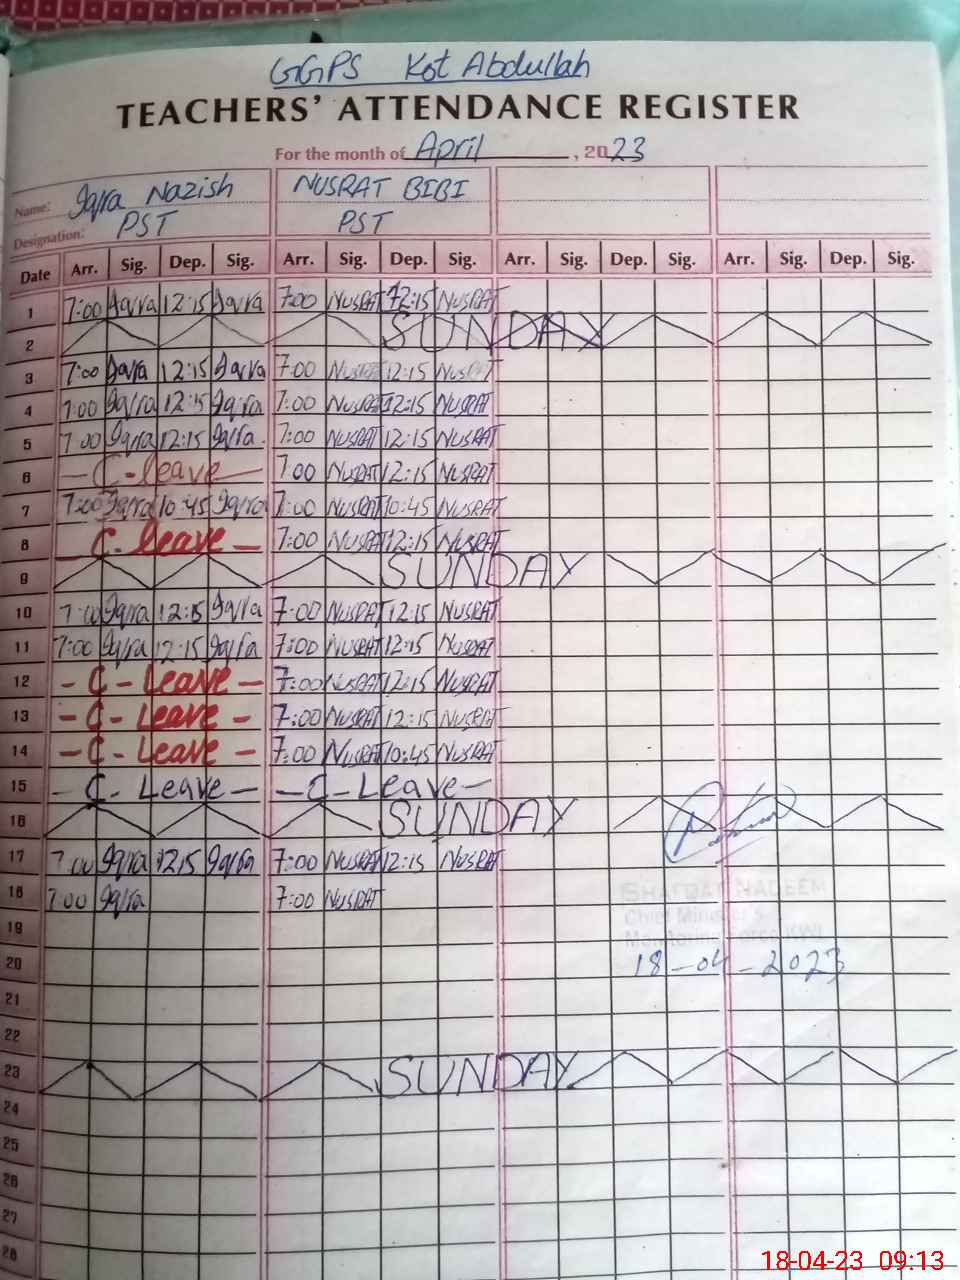 GGPS Kot Abdullah
TEACHERS' ATTENDANCE REGISTER
For the month of April, 2023
Name: Iqra Nazish NUSRAT BIBI
Designation: PST PST
Date Arr. Sig. Dep. Sig. Arr. Sig. Dep. Sig. Arr. Sig. Dep. Sig. Arr. Sig. Dep. Sig.
1 7:00 Iqra 12:15 Iqra 7:00 NUSRAT 12:15 NUSRAT
2 SUNDAY
3 7:00 Iqra 12:15 Iqra 7:00 NUSRAT 12:15 NUSRAT
4 7:00 Iqra 12:15 Iqra 7:00 NUSRAT 12:15 NUSRAT
5 7:00 Iqra 12:15 Iqra 7:00 NUSRAT 12:15 NUSRAT
6 - C - leave - 7:00 NUSRAT 12:15 NUSRAT
7 7:00 Iqra 10:45 Iqra 7:00 NUSRAT 10:45 NUSRAT
8 - C - leave - 7:00 NUSRAT 12:15 NUSRAT
9 SUNDAY
10 7:00 Iqra 12:15 Iqra 7:00 NUSRAT 12:15 NUSRAT
11 7:00 Iqra 12:15 Iqra 7:00 NUSRAT 12:15 NUSRAT
12 - C - Leave - 7:00 NUSRAT 12:15 NUSRAT
13 - C - Leave - 7:00 NUSRAT 12:15 NUSRAT
14 - C - Leave - 7:00 NUSRAT 10:45 NUSRAT
15 - C - Leave - - C - Leave -
16 SUNDAY
17 7:00 Iqra 12:15 Iqra 7:00 NUSRAT 12:15 NUSRAT
18 7:00 Iqra 7:00 NUSRAT
SHAFQAT NADEEM
19
Chief Minister's
Monitoring Force KWL
20 18-04-2023
21
22
23 SUNDAY
24
25
26
27
28
18-04-23 09:13